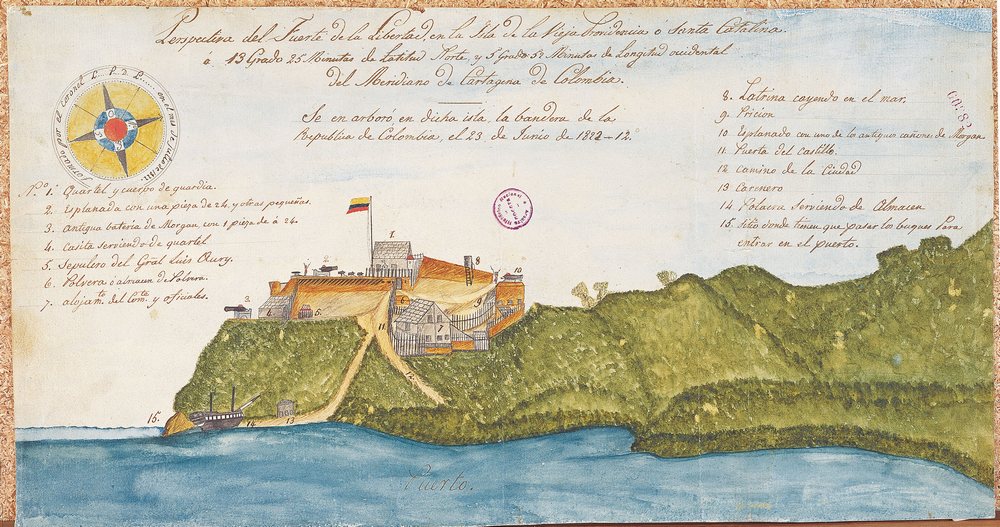 Perspectiva del Fuerte de la Libertad, en la Isla de la Vieja Providencia ó Santa Catalina.
a 13 Grado 25 Minutas de Latitud Norte, y 5 Grado 57 Minutas de Longitud occidental
Del Meridiano de Cartagena de Colombia.
Se en arboró, en dicha isla, la bandera de la
Republica de Colombia, el 23 de Junio de 1822-12º
por el Coronel L. P. d. L.
Nº 1. Quartel y cuerpo de guardia.
2. Esplanada con una pieza de 24, y otras pequeñas.
3. Antigua bateria de Morgan con 1 pieza de á 24.
4. Casita serviendo de quartel
5. Sepulcro del Gral Luis Aury.
6. Polvera ó almacen de Polvora.
7. alojamto. del Comte. y oficiales.
8. Latrina cayendo en el mar.
9. Pricion
10. Esplanada con uno de lo antiguos cañones de Morgan
11. Puerta del Castillo.
12. camino de la Ciudad
13. Caronero
14. Polacra serviendo de Almacen
15. Sitio donde tienen que pasar los buques para
entrar en el puerto.
1.
2.
3.
4.
5.
6
7
8
9
10
11
12.
13
14
15.
Puerto.